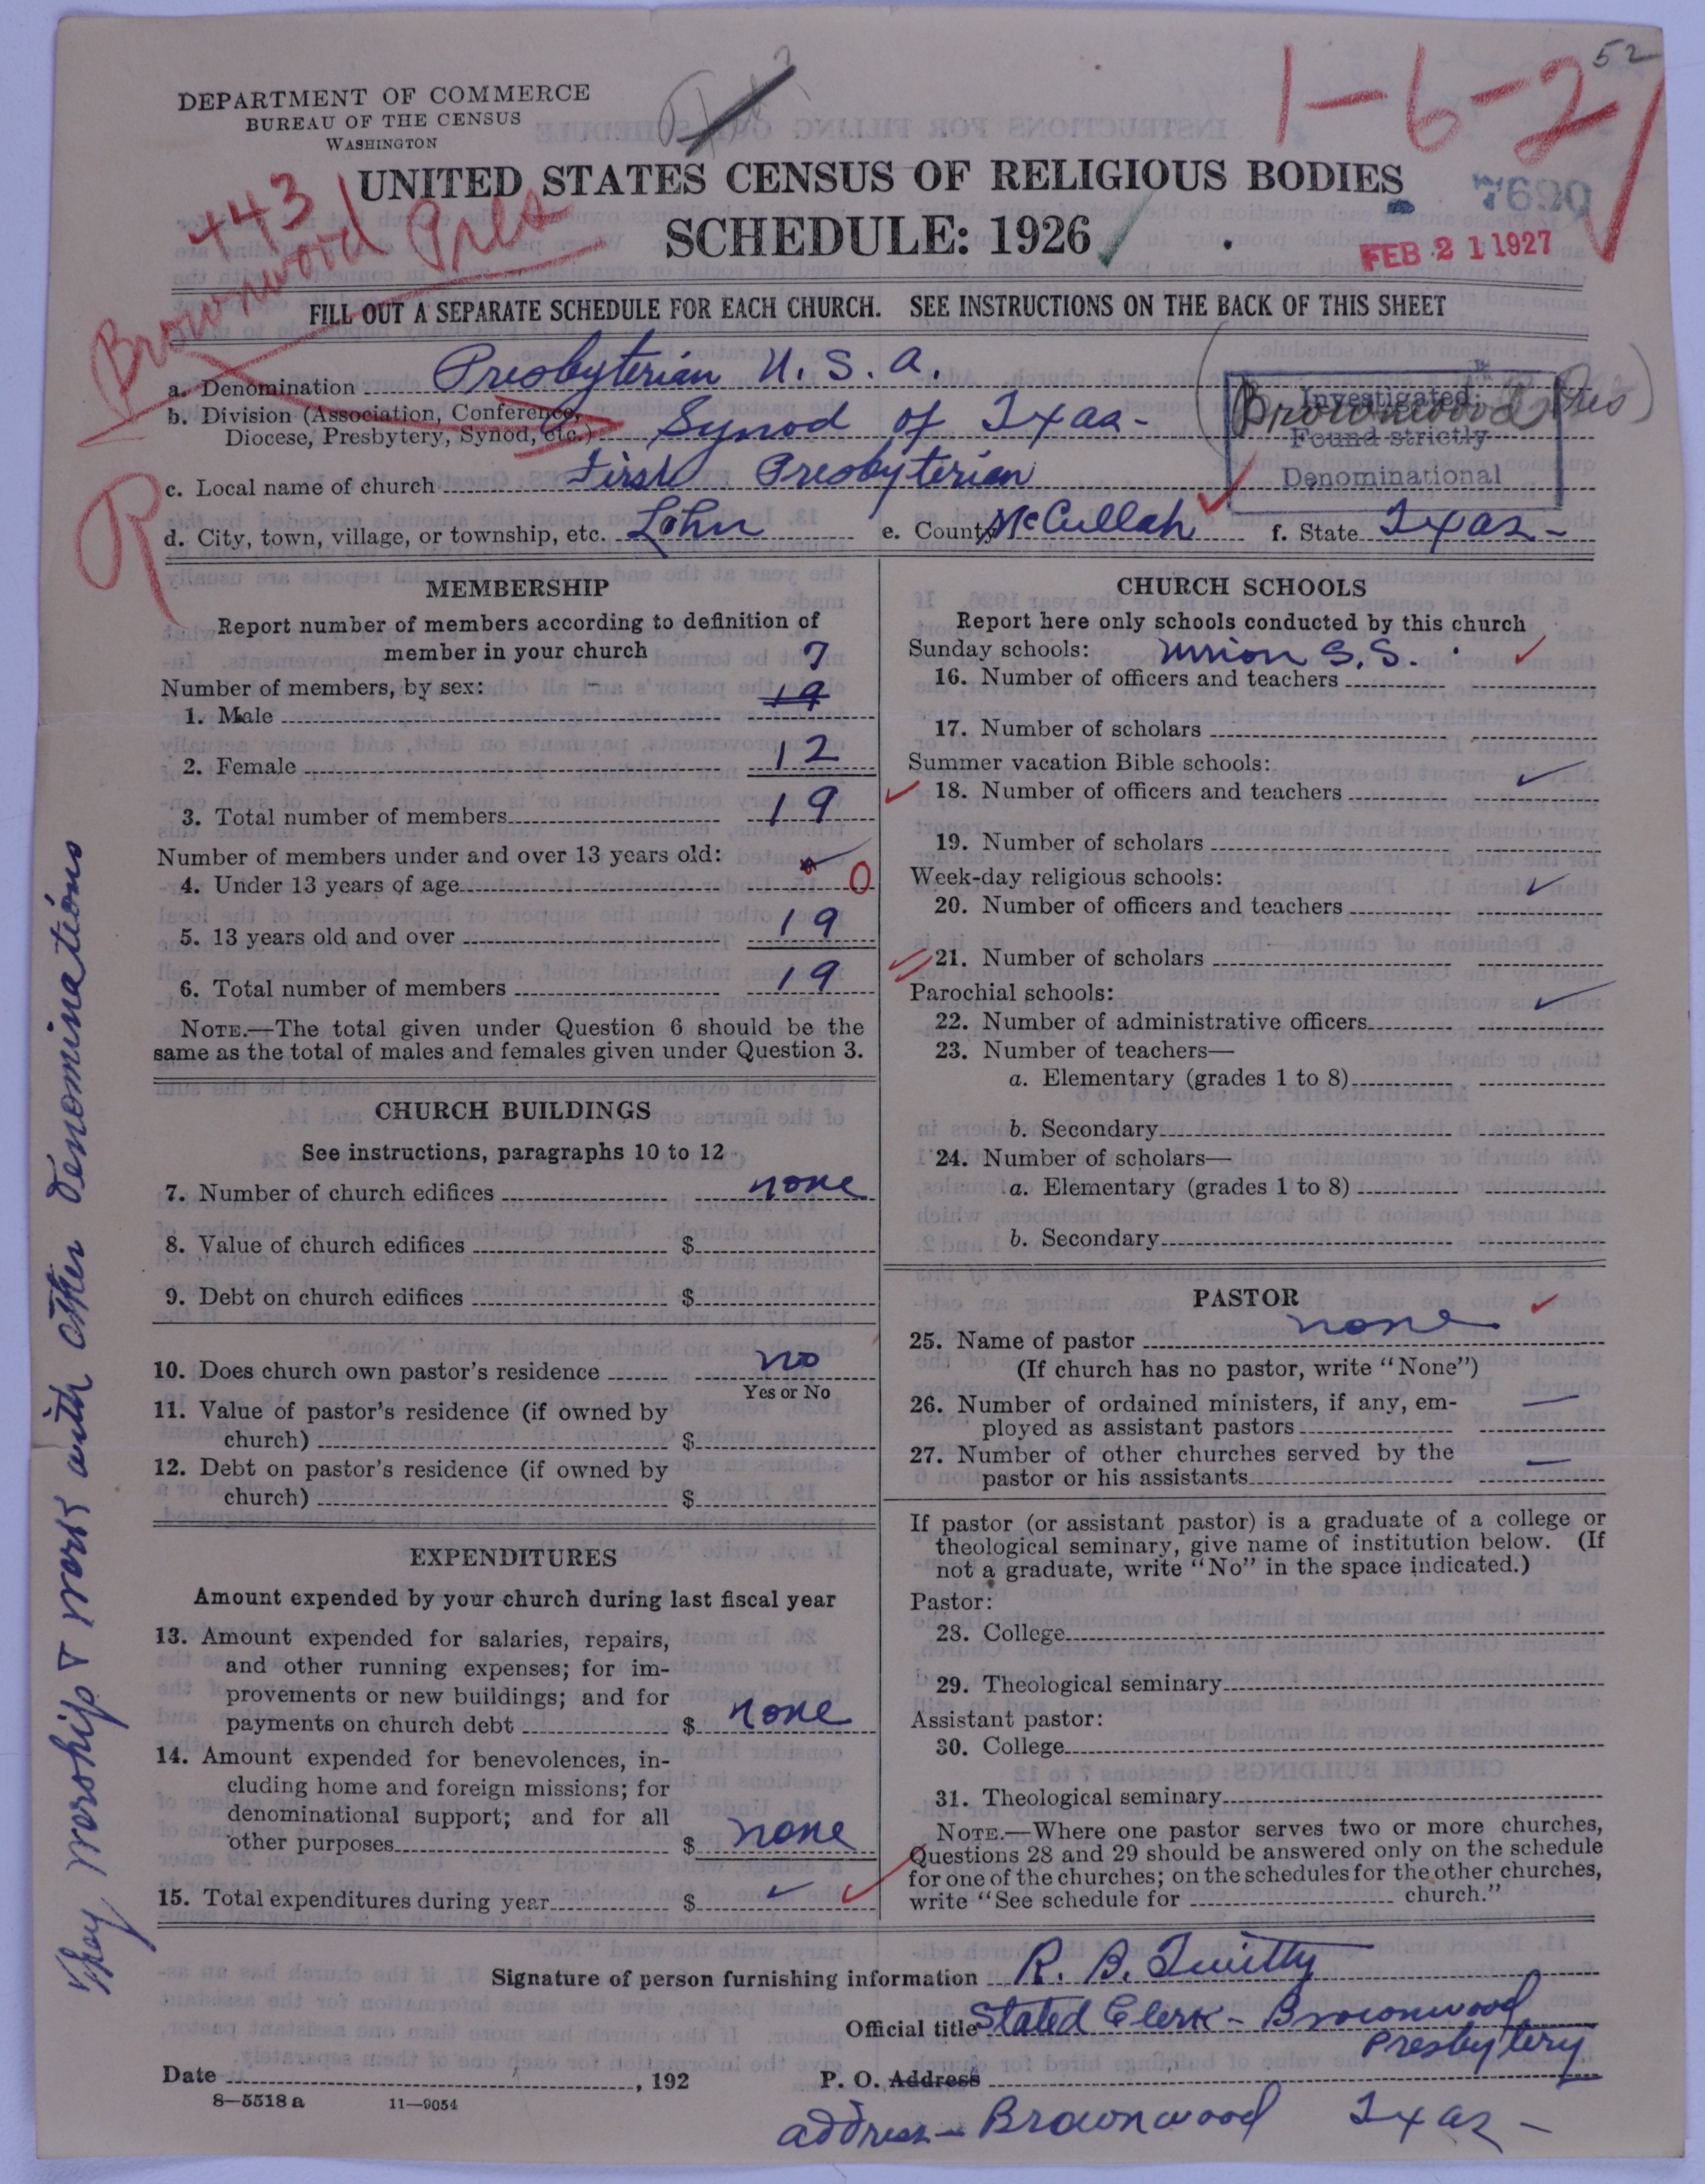 52
1-6-2
DEPARTMENT OF COMMERCE
BUREAU OF THE CENSUS
WASHINGTON
UNITED STATES CENSUS OF RELIGIOUS BODIES
SCHEDULE: 1926
7690
FEB 21 1927
443
Brownwood Pres
FILL OUT A SEPARATE SCHEDULE FOR EACH CHURCH. SEE INSTRUCTIONS ON THE BACK OF THIS SHEET
a. Denomination Presbyterian U. S. A.
b. Division (Association, Conference,
Diocese, Presbytery, Synod, etc.) Synod of Texas -
(Brownwood Pres)
Investigated
Found strictly
Denominational
c. Local name of church First Presbyterian
R
d. City, town, village, or township, etc. Lohn e. County McCullah f. State Texas -
MEMBERSHIP
Report number of members according to definition of
member in your church
Number of members, by sex: 7
1. Male 19
2. Female 12
3. Total number of members 19
Number of members under and over 13 years old:
4. Under 13 years of age 0
5. 13 years old and over 19
6. Total number of members 19
NOTE.—The total given under Question 6 should be the
same as the total of males and females given under Question 3.
CHURCH BUILDINGS
See instructions, paragraphs 10 to 12
7. Number of church edifices none
8. Value of church edifices $
9. Debt on church edifices $
10. Does church own pastor's residence no
Yes or No
11. Value of pastor's residence (if owned by
church) $
12. Debt on pastor's residence (if owned by
church) $
EXPENDITURES
Amount expended by your church during last fiscal year
13. Amount expended for salaries, repairs,
and other running expenses; for im-
provements or new buildings; and for
payments on church debt $ none
14. Amount expended for benevolences, in-
cluding home and foreign missions; for
denominational support; and for all
other purposes $ none
15. Total expenditures during year $
CHURCH SCHOOLS
Report here only schools conducted by this church
Sunday schools: Union S. S.
16. Number of officers and teachers
17. Number of scholars
Summer vacation Bible schools:
18. Number of officers and teachers
19. Number of scholars
Week-day religious schools:
20. Number of officers and teachers
21. Number of scholars
Parochial schools:
22. Number of administrative officers
23. Number of teachers—
a. Elementary (grades 1 to 8)
b. Secondary
24. Number of scholars—
a. Elementary (grades 1 to 8)
b. Secondary
PASTOR
25. Name of pastor none
(If church has no pastor, write "None")
26. Number of ordained ministers, if any, em-
ployed as assistant pastors —
27. Number of other churches served by the
pastor or his assistants —
If pastor (or assistant pastor) is a graduate of a college or
theological seminary, give name of institution below. (If
not a graduate, write "No" in the space indicated.)
Pastor:
28. College
29. Theological seminary
Assistant pastor:
30. College
31. Theological seminary
NOTE.—Where one pastor serves two or more churches,
Questions 28 and 29 should be answered only on the schedule
for one of the churches; on the schedules for the other churches,
write "See schedule for church."
They worship & work with other denominations
Signature of person furnishing information R. B. Twitty
Official title Stated Clerk - Brownwood
Presbytery
Date , 192 P. O. Address
8—5518 a 11—9054
address - Brownwood Texas -